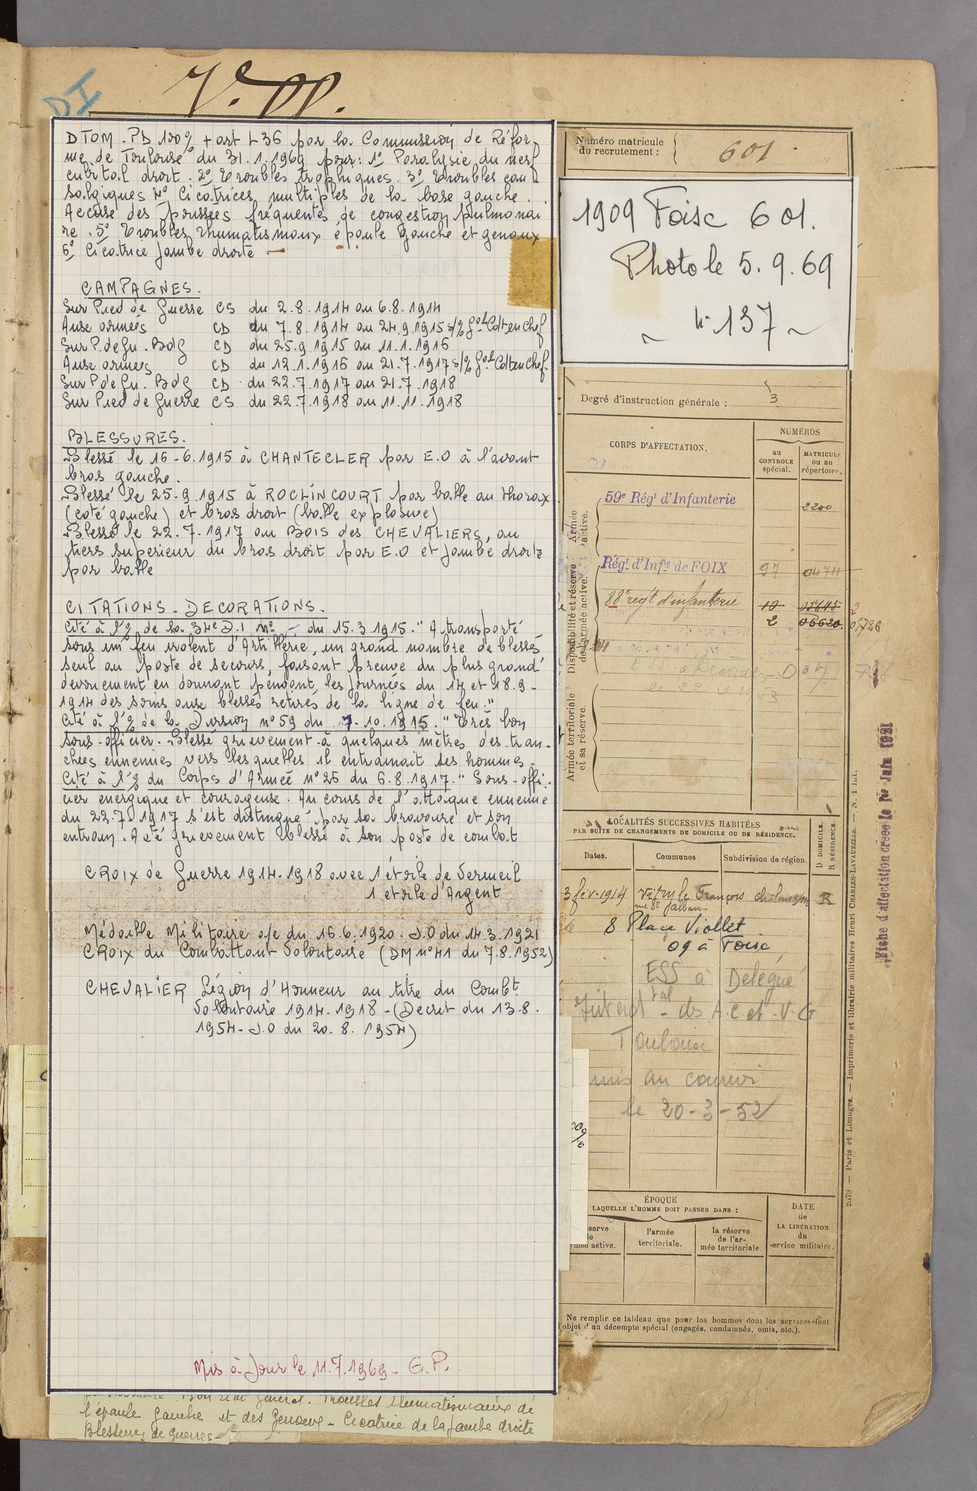 DI
V. PP.
DTOM. PD 100% + art L36 par la Commission de Réfor
me de Toulouse du 31.1.1969 pour: 1º Paralysie du nerf
cubital droit. 2º Troubles trophiques. 3º Troubles cau
salgiques 4º Cicatrices multiples de la base gauche.
Accuse des poussées fréquentes de congestion pulmonai
re. 5º Troubles rhumatismaux épaule gauche et genoux
6º Cicatrice jambe droite
CAMPAGNES.
Sur Pied de Guerre CS du 2.8.1914 au 6.8.1914
Aux armées CD du 7.8.1914 au 24.9.1915 s/% Gal Cdt en chef
Sur P. de Gu. Bdg CD du 25.9.1915 au 11.1.1916
Aux armées CD du 12.1.1916 au 21.7.1917 s/% Gal Cdt en chef
Sur P de Gu. Bdg CD du 22.7.1917 au 21.7.1918
Sur Pied de Guerre CS du 22.7.1918 au 11.11.1918
BLESSURES.
Blessé le 16-6.1915 à CHANTECLER par E.O à l'avant
bras gauche.
Blessé le 25.9.1915 à ROCLINCOURT par balle au thorax
(coté gauche) et bras droit (balle explosive)
Blessé le 22.7.1917 au BOIS des CHEVALIERS, au
tiers supérieur du bras droit par E.O et jambe droite
par balle
CITATIONS - DECORATIONS.
Cité à l'% de la 34e D.I Nº - du 15.3.1915. " A transporté
sous un feu violent d'Artillerie, un grand nombre de blessés
seul au poste de secours, faisant preuve du plus grand
dévouement en donnant pendant les journées du 14 et 18.9-
1914 des soins aux blessés retirés de la ligne de feu."
Cité à l'% de la Division nº 59 du 7.10.1915. " Très bon
sous-officier. Blessé grièvement à quelques mètres des tran-
chées ennemies vers lesquelles il entrainait ses hommes.
Cité à l'% du Corps d'Armée nº 26 du 6.8.1917. " Sous-offi-
cier énergique et courageuse. Au cours de l'attaque ennemie
du 22.7.1917 s'est distingué par sa bravoure et son
entrain. A été grièvement blessé à son poste de combat
CROIX de Guerre 1914.1918 avec 1 étoile de Vermeil
1 étoile d'Argent
Médaille Militaire o/e du 16.6.1920. J.O du 14.3.1921
CROIX du Combattant Volontaire (DM nº 41 du 7.8.1952)
CHEVALIER Légion d'Honneur au titre du Combt
Volontaire 1914.1918 - (Décret du 13.8.
1954 - J.O du 20.8.1954)
Mis à Jour le 11.7.1969 - G.P.
général. Troubles rhumatismaux de
l'épaule gauche et des Genoux - Cicatrice de la jambe droite
Blessures de guerres
Numéro matricule
du recrutement :
601
1909 Foix 601.
Photo le 5.9.69
N. 137
Degré d'instruction générale : 3
CORPS D'AFFECTATION.
NUMÉROS
au
CONTROLE
spécial.
MATRICULE
ou au
répertoire.
Armée
active.
59e Régt d'Infanterie
2200
Disponibilité et réserve
de l'armée active.
Régt d'Infie de FOIX 97 0474
88e régt d'infanterie
2 06620
Armée territoriale
et sa réserve.
LOCALITÉS SUCCESSIVES HABITÉES
PAR SUITE DE CHANGEMENTS DE DOMICILE OU DE RÉSIDENCE.
Dates.
Communes
Subdivision de région.
D DOMICILE.
R RÉSIDENCE.
3 fev-1914 Vitry le François R
8 Place Viollet
09 à Foix
ESS à Délégué
Interdtal - des A.C et V.G
Toulouse
mis au courant
le 20-3-52
ÉPOQUE
LAQUELLE L'HOMME DOIT PASSER DANS :
DATE
de
LA LIBÉRATION
du
service militaire.
l'armée
territoriale.
la réserve
de l'ar-
mée territoriale.
Ne remplir ce tableau que pour les hommes dont les services font
l'objet d'un décompte spécial (engagés, condamnés, omis, etc.).
Paris et Limoges. — Imprimerie et librairie militaires Henri CHARLES-LAVAUZELLE.
Fiche d'affectation créée le 1er Juin 1921